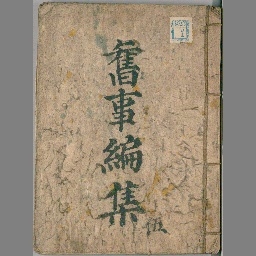 舊事編集
五